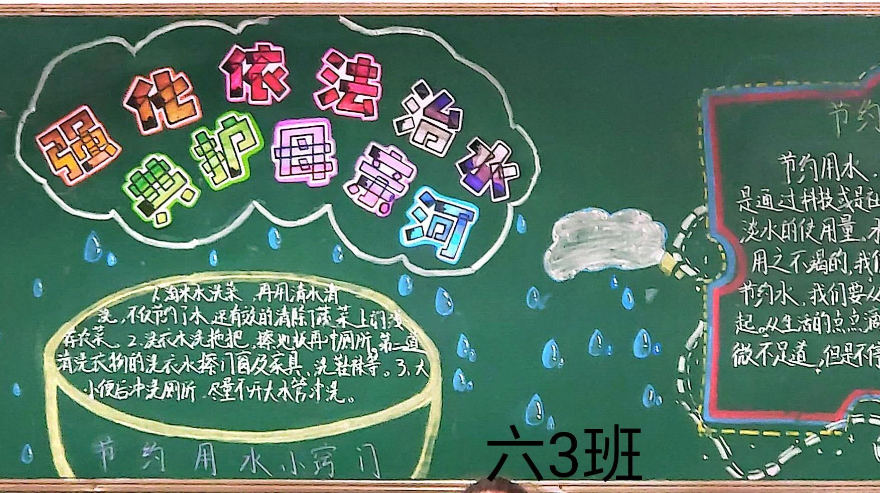 强化依法治水
共护母亲河
1、淘米水洗菜，再用清水清
洗，不仅节约了水，还有效的清除了蔬菜上的残
存农药。2、洗衣水洗拖把、擦地板再冲厕所。第二道
清洗衣物的洗衣水擦门窗及家具、洗鞋袜等。3、大
小便后冲洗厕所，尽量不开大水管冲洗。
节约用水小窍门
节约
节约用水，
是通过科技或是社
淡水的使用量。水
用之不竭的，我们
节约水，我们要从
起。从生活的点点滴
微不足道，但是不停
六3班